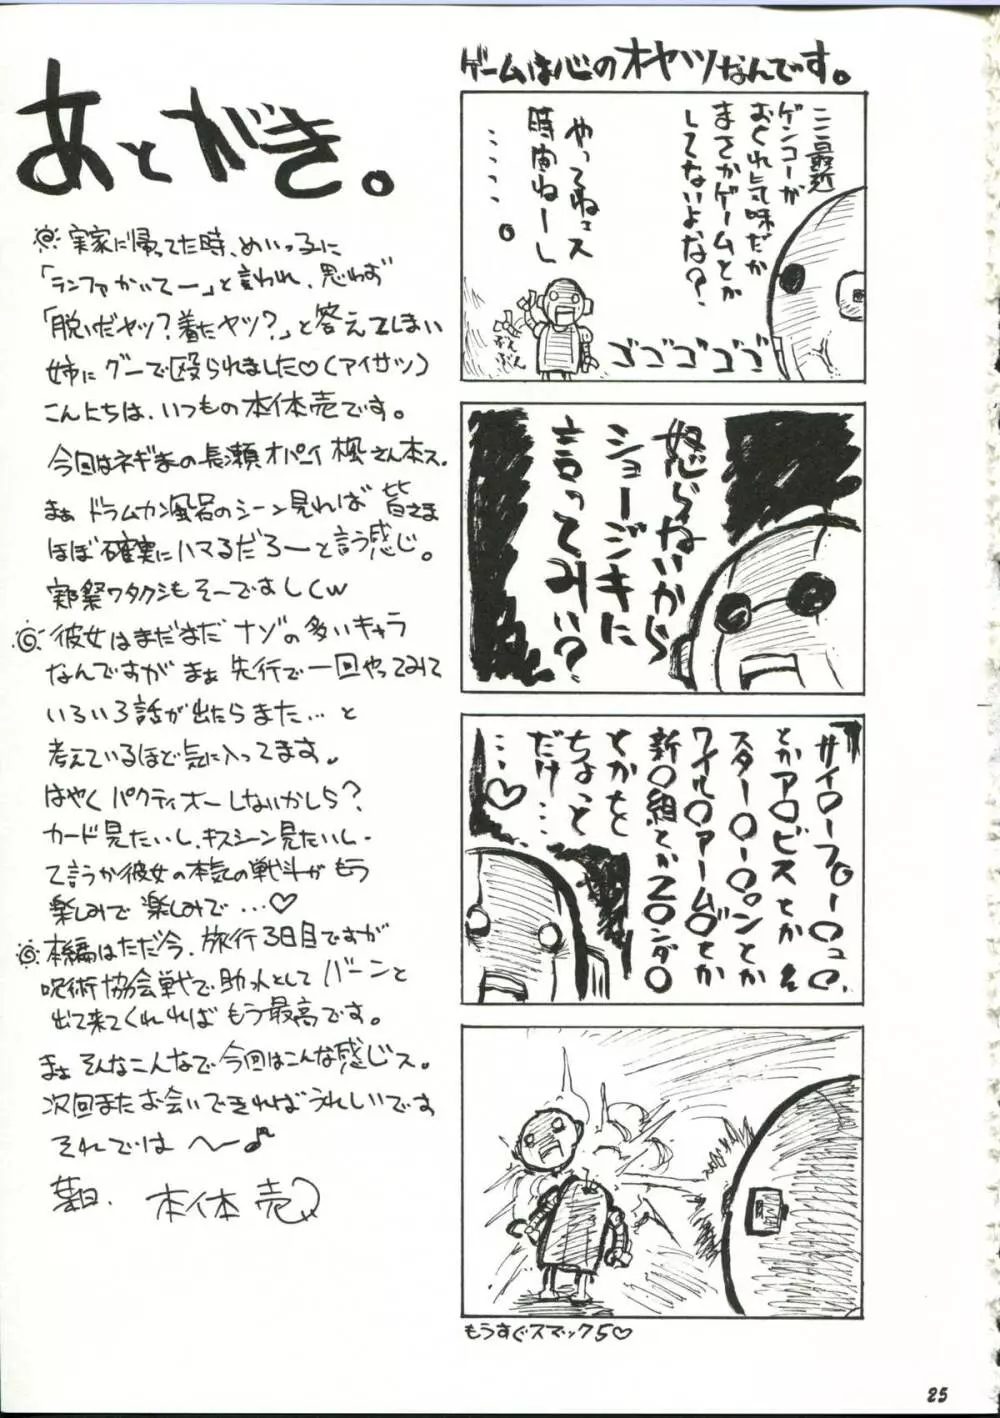 あとがき。
実家に帰ってた時、めいっ子に
「ランファかいてー」と言われ、思わず
「脱いだヤツ?着たヤツ?」と答えてしまい
姉にグーで殴られました♡(アイサツ)
こんにちは、いつもの本体売です。
今回はネギまの長瀬オパーイ楓さん本ス。
まぁドラムカン風呂のシーン見れば皆さま
ほぼ確実にハマるだろーと言う感じ。
実際ワタクシもそーですしw
彼女はまだまだナゾの多いキャラ
なんですがまぁ先行で一回やってみて
いろいろ話が出たらまた…と
考えているほど気に入ってます。
はやくパクティオーしないかしら?
カード見たいし、キスシーン見たいし、
て言うか彼女の本気の戦斗がもう
楽しみで楽しみで…♡
本編はただ今、旅行3日目ですが
呪術協会戦で助っ人としてバーンと
出て来てくれればもう最高です。
まぁそんなこんなで今回はこんな感じス。
次回またお会いできればうれしいです
それでは へ〜♪
本体売
ゲームは心のオヤツなんです。
ここ最近
ゲンコーが
おくれ気味だか
まさかゲームとか
してないよな?
やってねェス
時間ねーし
……。
ぶんぶん
ゴゴゴゴゴ
怒らないから
ショージキに
言ってみい?
サイ〇ーフ〇ー〇ュ〇、
とかア〇ビスとか
スター〇ー〇ンとか
ワイル〇アーム〇とか
新〇組とかZ〇ンダ〇
とかを
ちょっと
だけ……
…♡
もうすぐスマック5♡
25